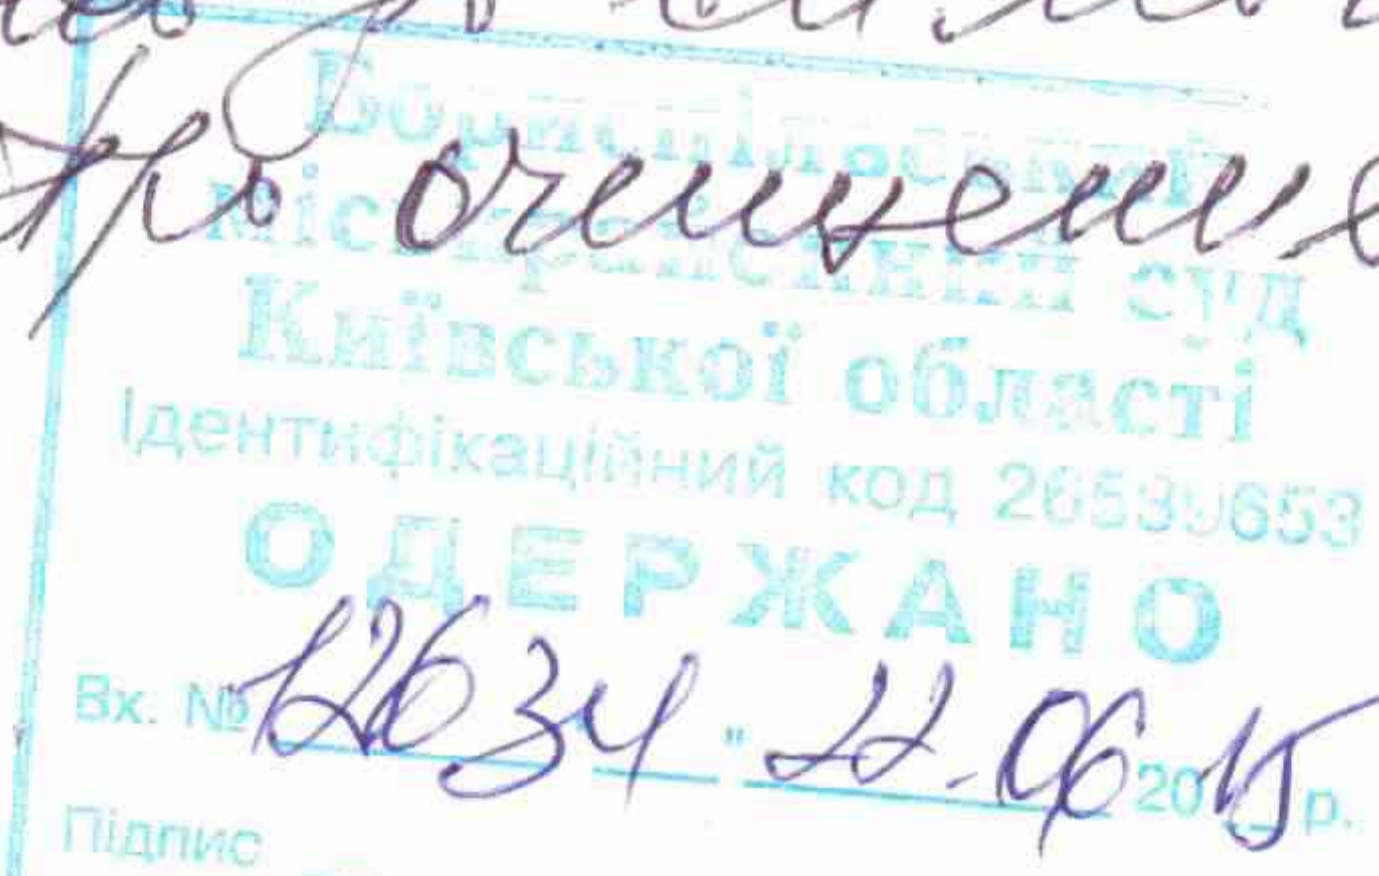 про очищення
Бориспільський
міськрайонний суд
Київської області
Ідентифікаційний код 26539653
ОДЕРЖАНО
Вх. № 12634 " 22.06 2015 р.
Підпис